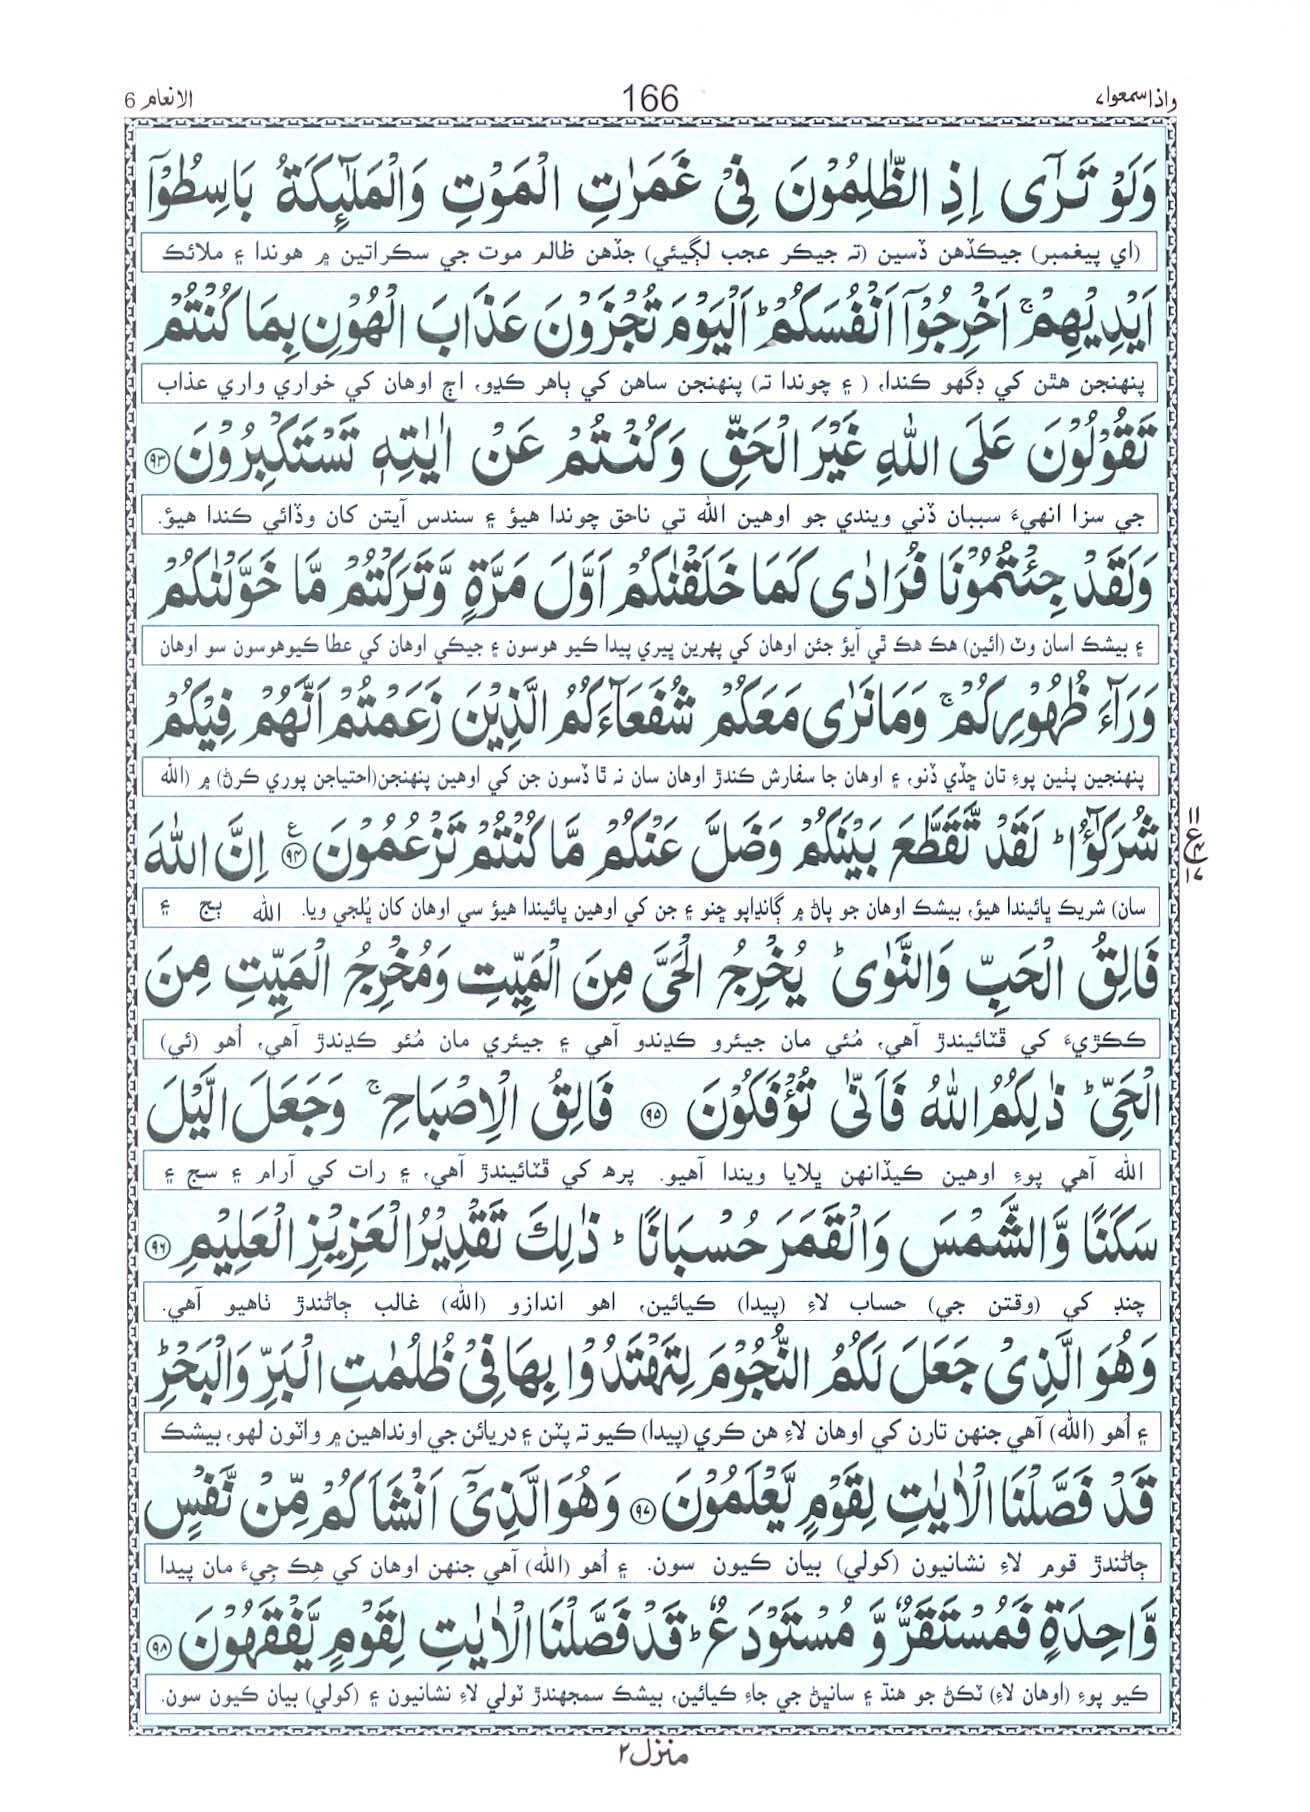 واذاسمعوا۷ 166 الانعام 6
وَلَوْ تَرٰٓی اِذِ الظّٰلِمُوْنَ فِیْ غَمَرٰتِ الْمَوْتِ وَالْمَلٰٓئِكَةُ بَاسِطُوْٓا
(اي پيغمبر) جيڪڏهن ڏسين (ته جيڪر عجب لڳيئي) جڏهن ظالم موت جي سڪراتين ۾ هوندا ۽ ملائڪ
اَیْدِیْهِمْ ۚ اَخْرِجُوْٓا اَنْفُسَكُمْ ؕ اَلْیَوْمَ تُجْزَوْنَ عَذَابَ الْهُوْنِ بِمَا كُنْتُمْ
پنهنجن هٿن کي ڊگهو ڪندا، ( ۽ چوندا ته) پنهنجن ساهن کي ٻاهر ڪڍو، اڄ اوهان کي خواري واري عذاب
تَقُوْلُوْنَ عَلَی اللّٰهِ غَیْرَ الْحَقِّ وَكُنْتُمْ عَنْ اٰیٰتِهٖ تَسْتَكْبِرُوْنَ ﴿۹۳﴾
جي سزا انهيءَ سببان ڏني ويندي جو اوهين الله تي ناحق چوندا هيؤ ۽ سندس آيتن کان وڏائي ڪندا هيؤ.
وَلَقَدْ جِئْتُمُوْنَا فُرَادٰی كَمَا خَلَقْنٰكُمْ اَوَّلَ مَرَّةٍ وَّتَرَكْتُمْ مَّا خَوَّلْنٰكُمْ
۽ بيشڪ اسان وٽ (ائين) هڪ هڪ ٿي آيؤ جئن اوهان کي پهرين ڀيري پيدا ڪيو هوسون ۽ جيڪي اوهان کي عطا ڪيوهوسون سو اوهان
وَرَآءَ ظُهُوْرِكُمْ ۚ وَمَا نَرٰی مَعَكُمْ شُفَعَآءَكُمُ الَّذِیْنَ زَعَمْتُمْ اَنَّهُمْ فِیْكُمْ
پنهنجين پٺين پوءِ تان ڇڏي ڏنو، ۽ اوهان جا سفارش ڪندڙ اوهان سان نه ٿا ڏسون جن کي اوهين پنهنجن(احتياجن پوري ڪرڻ) ۾ (الله
شُرَكٰٓؤُا ؕ لَقَدْ تَّقَطَّعَ بَیْنَكُمْ وَضَلَّ عَنْكُمْ مَّا كُنْتُمْ تَزْعُمُوْنَ ﴿۹۴﴾ ع اِنَّ اللّٰهَ
سان) شريڪ ڀائيندا هيؤ، بيشڪ اوهان جو پاڻ ۾ ڳانڍاپو ڇنو ۽ جن کي اوهين ڀائيندا هيؤ سي اوهان کان ڀُلجي ويا. الله ٻج ۽
فَالِقُ الْحَبِّ وَالنَّوٰی ؕ یُخْرِجُ الْحَیَّ مِنَ الْمَیِّتِ وَمُخْرِجُ الْمَیِّتِ مِنَ
ککڙيءَ کي ڦٽائيندڙ آهي، مُئي مان جيئرو ڪڍندو آهي ۽ جيئري مان مُئو ڪڍندڙ آهي، اُهو (ئي)
الْحَیِّ ؕ ذٰلِكُمُ اللّٰهُ فَاَنّٰی تُؤْفَكُوْنَ ﴿۹۵﴾ فَالِقُ الْاِصْبَاحِ ۚ وَجَعَلَ الَّیْلَ
الله آهي پوءِ اوهين ڪيڏانهن ڀلايا ويندا آهيو. پرهه کي ڦٽائيندڙ آهي، ۽ رات کي آرام ۽ سج ۽
سَكَنًا وَّالشَّمْسَ وَالْقَمَرَ حُسْبَانًا ؕ ذٰلِكَ تَقْدِیْرُ الْعَزِیْزِ الْعَلِیْمِ ﴿۹۶﴾
چنڊ کي (وقتن جي) حساب لاءِ (پيدا) ڪيائين، اهو اندازو (الله) غالب ڄاڻندڙ ٺاهيو آهي.
وَهُوَ الَّذِیْ جَعَلَ لَكُمُ النُّجُوْمَ لِتَهْتَدُوْا بِهَا فِیْ ظُلُمٰتِ الْبَرِّ وَالْبَحْرِ ؕ
۽ اُهو (الله) آهي جنهن تارن کي اوهان لاءِ هن ڪري (پيدا) ڪيو ته پٽن ۽ دريائن جي اونداهين ۾ واٽون لهو، بيشڪ
قَدْ فَصَّلْنَا الْاٰیٰتِ لِقَوْمٍ یَّعْلَمُوْنَ ﴿۹۷﴾ وَهُوَ الَّذِیْٓ اَنْشَاَكُمْ مِّنْ نَّفْسٍ
ڄاڻندڙ قوم لاءِ نشانيون (کولي) بيان ڪيون سون. ۽ اُهو (الله) آهي جنهن اوهان کي هِڪ جِيءَ مان پيدا
وَّاحِدَةٍ فَمُسْتَقَرٌّ وَّ مُسْتَوْدَعٌ ؕ قَدْ فَصَّلْنَا الْاٰیٰتِ لِقَوْمٍ یَّفْقَهُوْنَ ﴿۹۸﴾
ڪيو پوءِ (اوهان لاءِ) ٽڪڻ جو هنڌ ۽ سانڀڻ جي جاءِ ڪيائين، بيشڪ سمجهندڙ ٽولي لاءِ نشانيون ۽ (کولي) بيان ڪيون سون.
۱۱
ع
۱۷
منزل۲